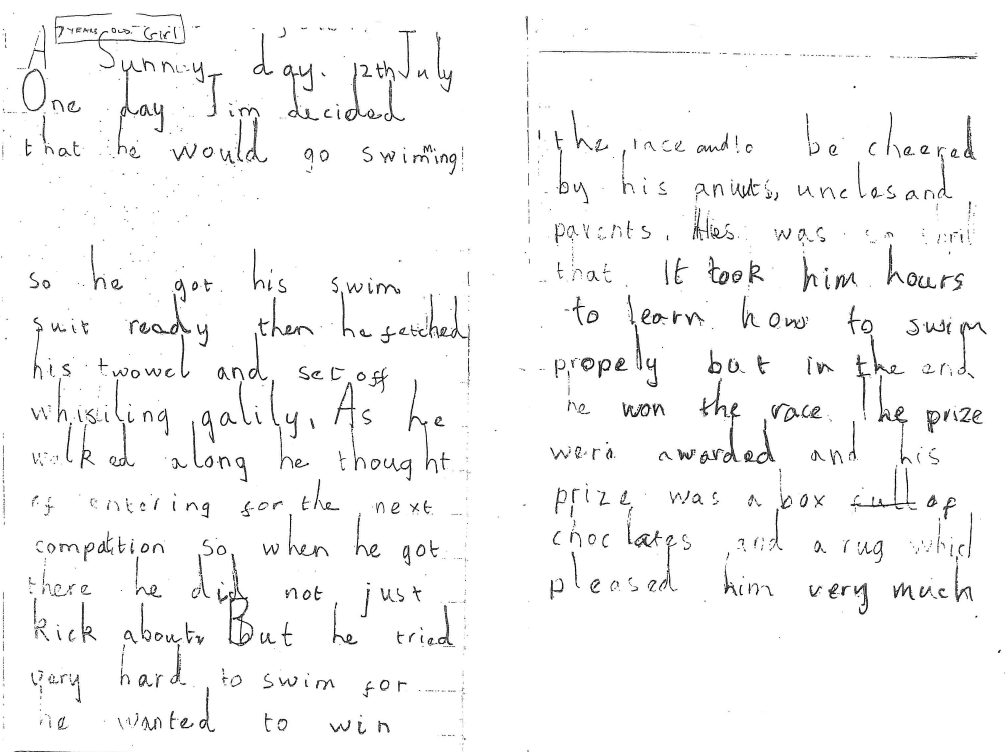 7 YEARS OLD. Girl
A Sunny day. 12th July
One day Jim decided
that he would go swiming
so he got his swim
suit ready then he fetched
his twowel and set off
whisiling galily. As he
walked along he thought
of entering for the next
compatition so when he got
there he did not just
kick about. But he tried
very hard to swim for
he wanted to win
the race and to be cheered
by his anuts, uncles and
parents. Hes was so
that It took him hours
to learn how to swim
propely but in the end
he won the race. The prize
were awarded and his
prize was a box full of
choclates and a rug which
pleased him very much